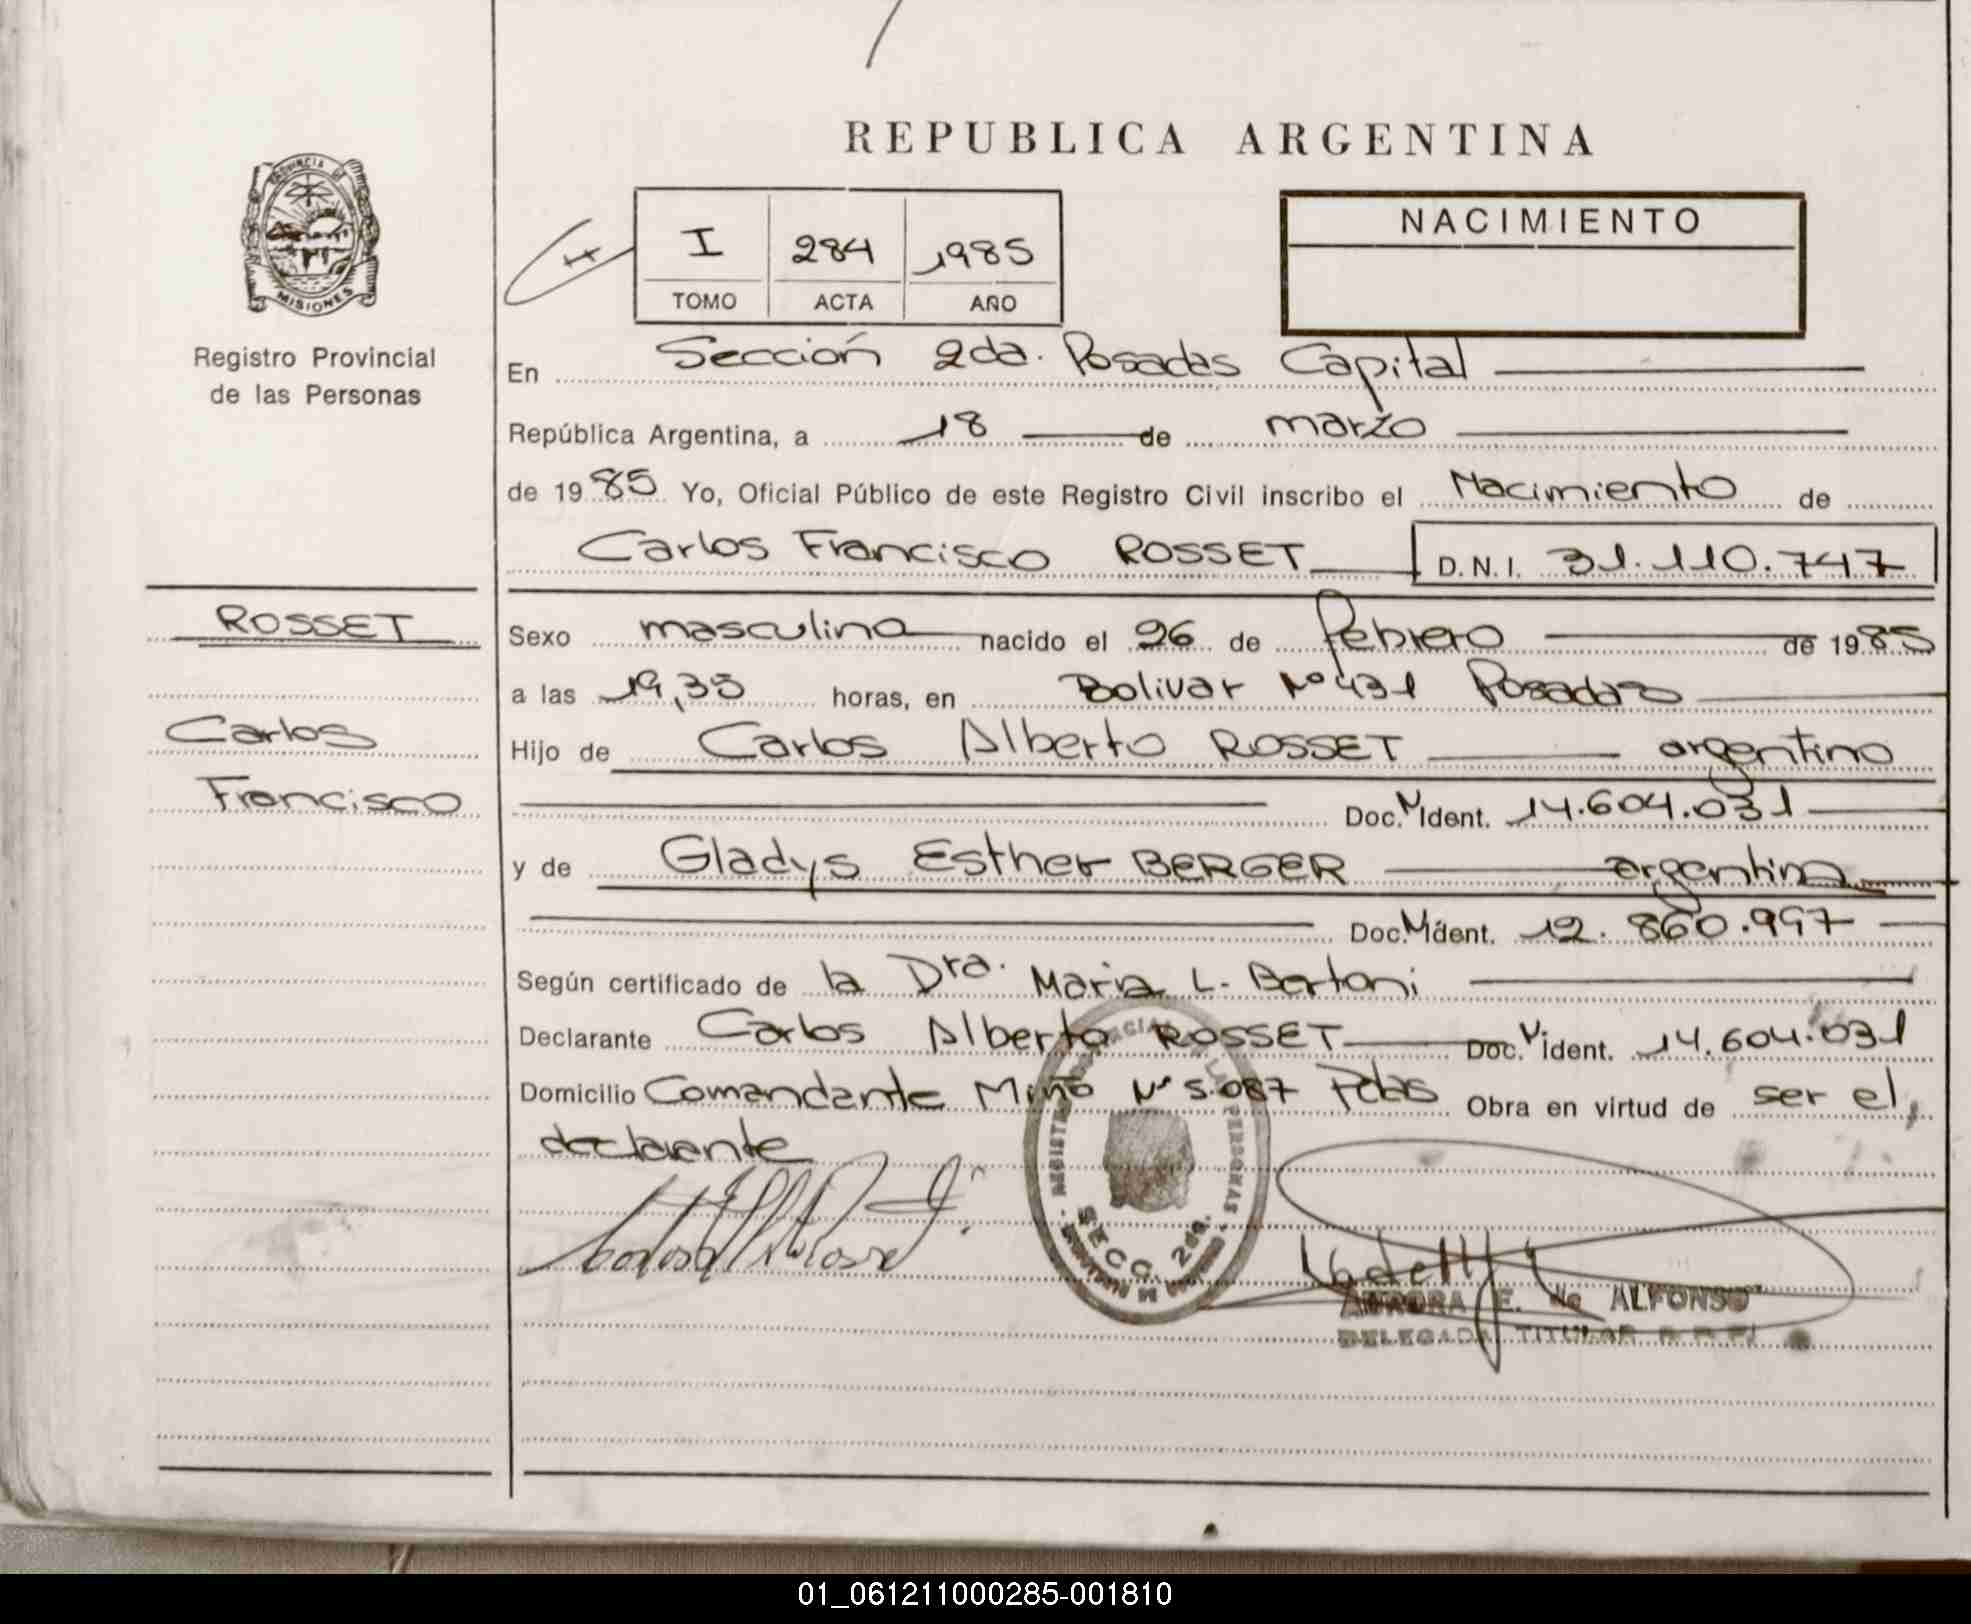 REPUBLICA ARGENTINA
PROVINCIA DE
MISIONES
Registro Provincial
de las Personas
I 284 1985
TOMO ACTA AÑO
NACIMIENTO
En Sección 2da. Posadas Capital
República Argentina, a 18 de marzo
de 1985 Yo, Oficial Público de este Registro Civil inscribo el Nacimiento de
Carlos Francisco ROSSET D.N.I. 31.110.747
ROSSET
Carlos
Francisco
Sexo masculino nacido el 26 de Febrero de 1985
a las 19,35 horas, en Bolivar Nº 431 Posadas
Hijo de Carlos Alberto ROSSET argentino
Doc. N Ident. 14.604.031
y de Gladys Esther BERGER argentina
Doc. N Ident. 12.860.997
Según certificado de la Dra. Maria L. Bertoni
Declarante Carlos Alberto ROSSET Doc. N Ident. 14.604.031
Domicilio Comandante Miño Nº 5.087 Pdas Obra en virtud de ser el,
declarante
SECC. 2da.
AURORA E. de ALFONSO
DELEGADA TITULAR R.P.P.
01_061211000285-001810